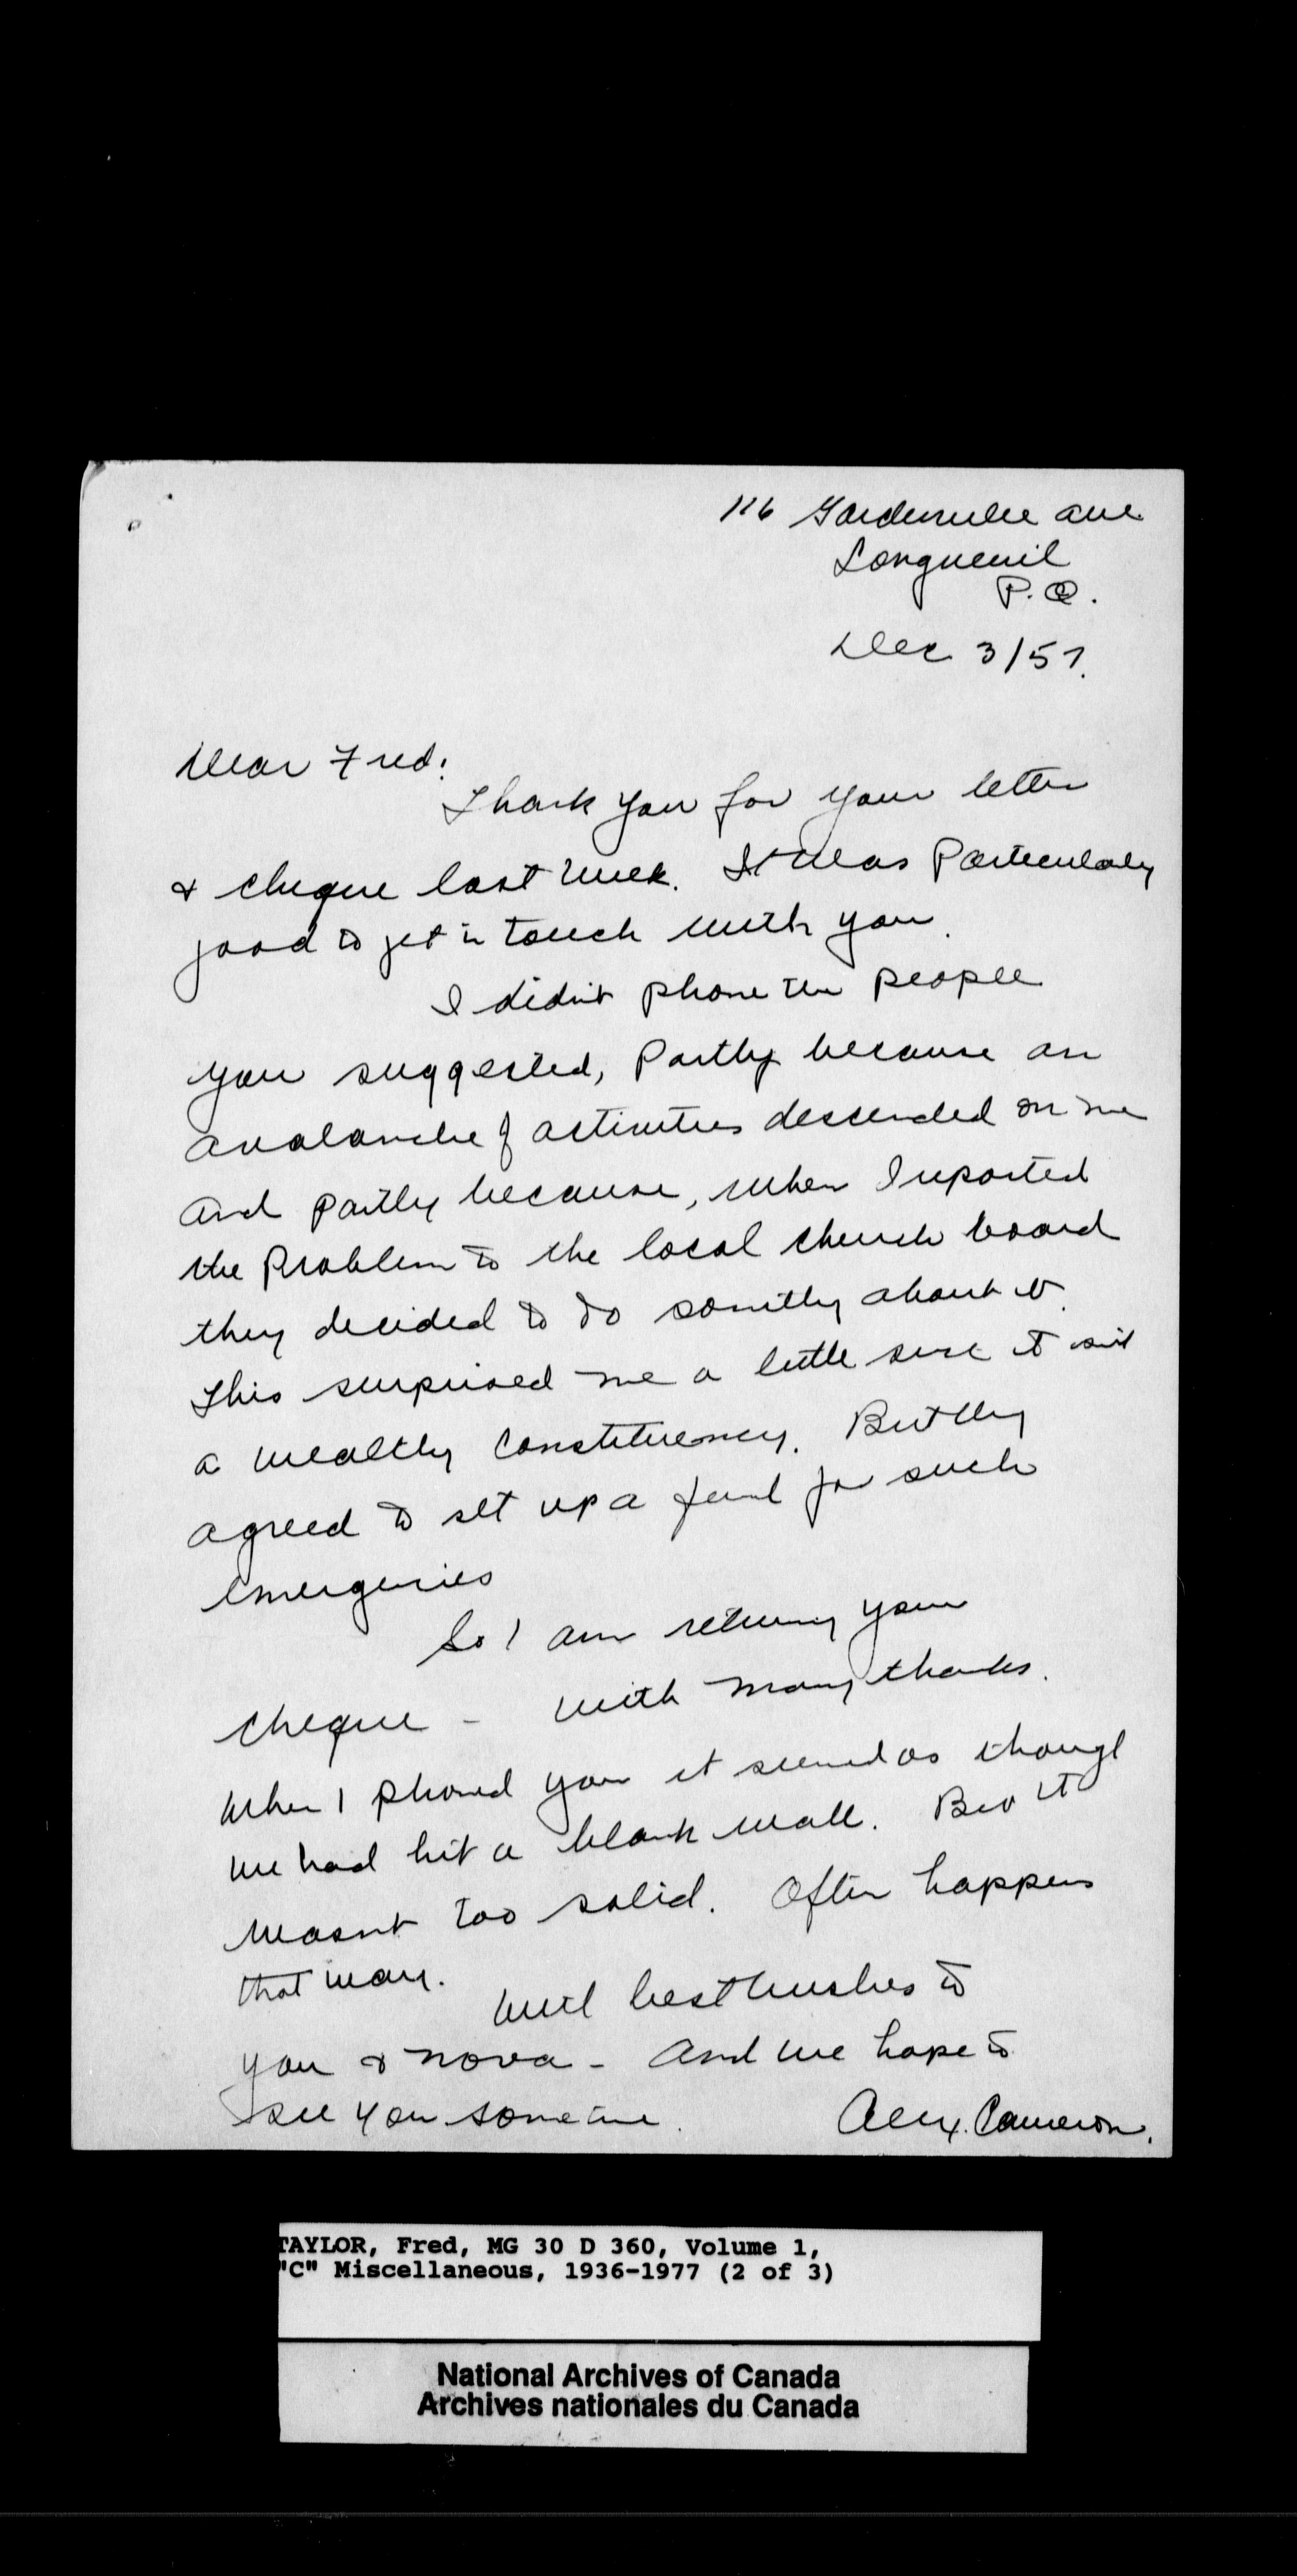 116 Gardenville Ave
Longueuil
P.Q.
Dec 3/57.
Dear Fred:
Thank you for your letter
& cheque last week. It was particularly
good to get in touch with you.
I didn't phone the people
you suggested, partly because an
avalanche of activities descended on me
and partly because, when I reported
the problem to the local church board
they decided to do something about it.
This surprised me a little since it isn't
a wealthy constituency. But they
agreed to set up a fund for such
emergencies
So I am returning your
cheque - with many thanks.
When I phoned you it seemed as though
we had hit a blank wall. But it
wasn't too solid. Often happens
that way.
With best wishes to
you & Nova - and we hope to
see you sometime.
Alex. Cameron.
TAYLOR, Fred, MG 30 D 360, Volume 1,
"C" Miscellaneous, 1936-1977 (2 of 3)
National Archives of Canada
Archives nationales du Canada